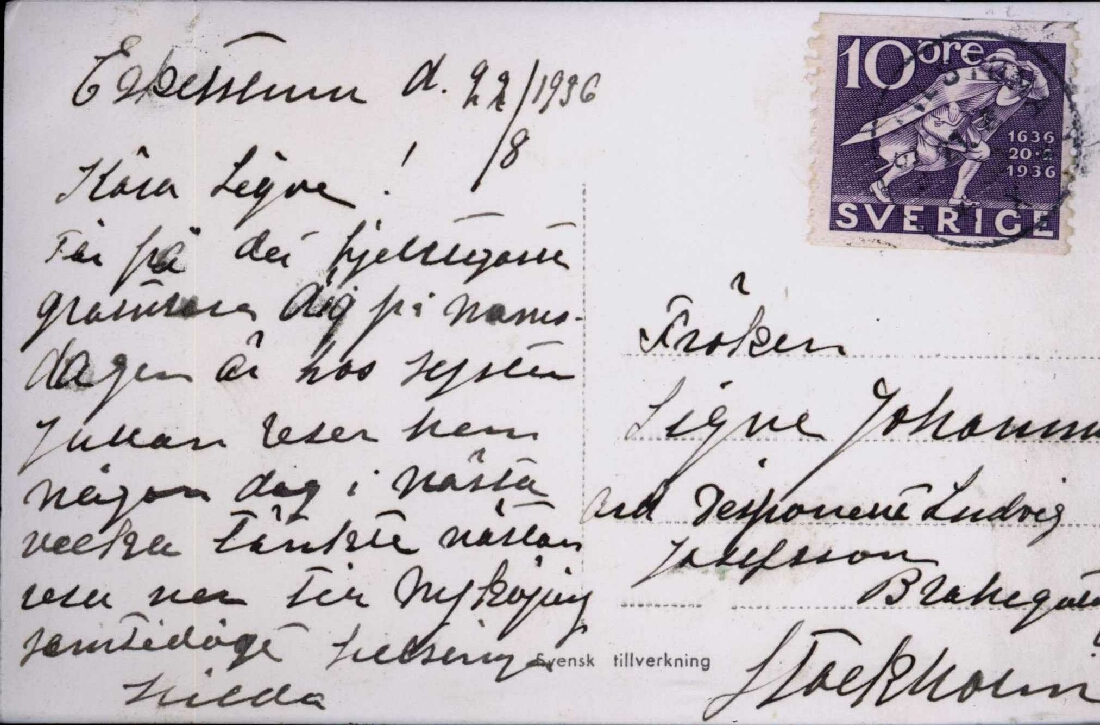 Eskelstuna d. 22/8 1936
Kära Signe!
Får på det hjertligaste
gratulera dig på namns-
dagen är hos systern
Jullan reser hem
någon dag i nästa
vecka tänkte nästan
resa ner till Nyköping
samtidigt hälsningar
Hilda
10 öre
1636
20-8
1936
SVERIGE
Fröken
Signe
ad Disponent Ludvig
Josefsson
Stockholm
Svensk tillverkning